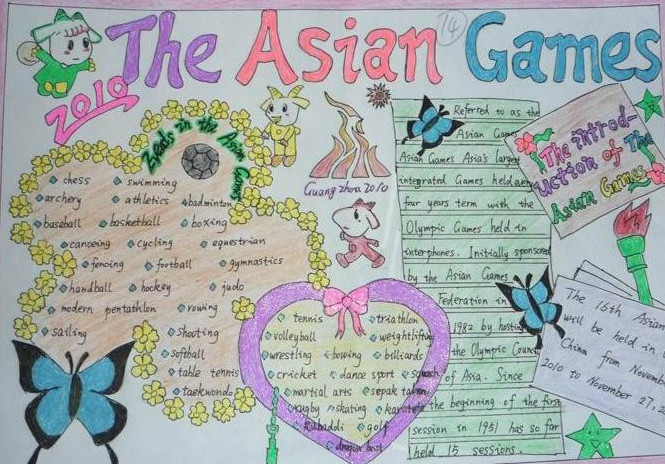 14
The Asian Games
2010
in the Asian Games
chess swimming
archery athletics badminton
baseball basketball boxing
canoeing cycling equestrian
fencing football gymnastics
handball hockey judo
modern pentathlon rowing
sailing shooting
softball
table tennis
taekwondo
Guangzhou 2010
tennis triathlon
volleyball weightlifting
wrestling bowing billiards
cricket dance sport
martial arts sepak
rugby skating karate
Kabaddi golf
dragon boat
Referred to as the
Asian Games
Asian Games Asia's largest
integrated Games held every
four years term with the
Olympic Games held in
interphones. Initially sponsored
by the Asian Games
Federation in
1982 by hosting
the Olympic Council
of Asia. Since
the beginning of the first
session in 1951 has so far
held 15 sessions.
The introd-
uction of The
Asian Games
The 16th Asian
will be held in
China from Novemb
2010 to November 27,